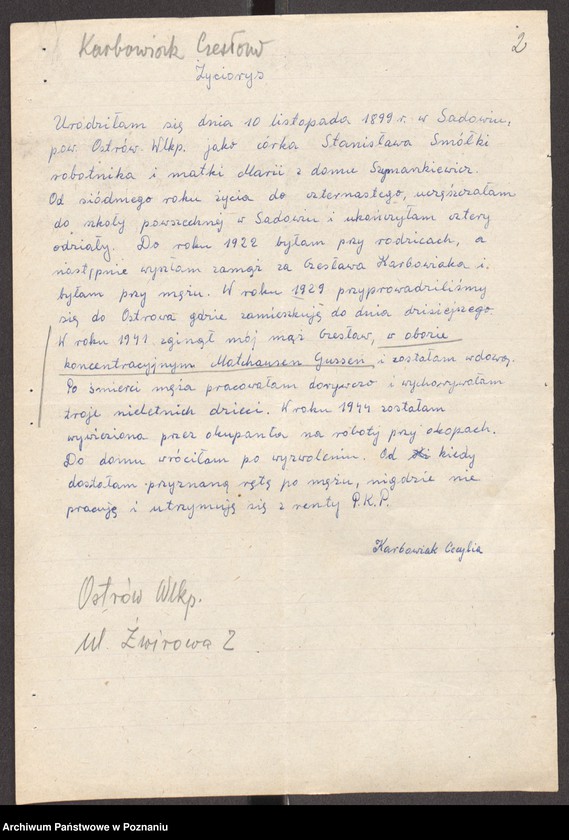 Karbowiak Czesław
2
Życiorys
Urodziłam się dnia 10 listopada 1899 r. w Sadowiu,
pow. Ostrów-Wlkp. jako córka Stanisława Smółki
robotnika i matki Marii z domu Szymankiewicz.
Od siódmego roku życia do czternastego, uczęszczałam
do szkoły powszechnej w Sadowiu i ukończyłam cztery
odziały. Do roku 1922 byłam przy rodzicach, a
następnie wyszłam zamąż za Czesława Karbowiaka i
byłam przy mężu. W roku 1929 przyprowadziliśmy
się do Ostrowa gdzie zamieszkuję do dnia dzisiejszego
W roku 1941 zginął mój mąż Czesław, w obozie
koncentracyjnym Matchausen Gussen, i zostałam wdową.
Po śmierci męża pracowałam dorywczo i wychowywałam
troje nieletnich dzieci. W roku 1944 zostałam
wywieziona przez okupanta na roboty przy okopach.
Do domu wróciłam po wyzwoleniu. Od kiedy
dostałam przyznaną rętę po mężu, nigdzie nie
pracuję i utrzymuję się z renty P.K.P.
Karbowiak Cecylia
Ostrów Wlkp.
ul. Żwirowa 2
Archiwum Państwowe w Poznaniu